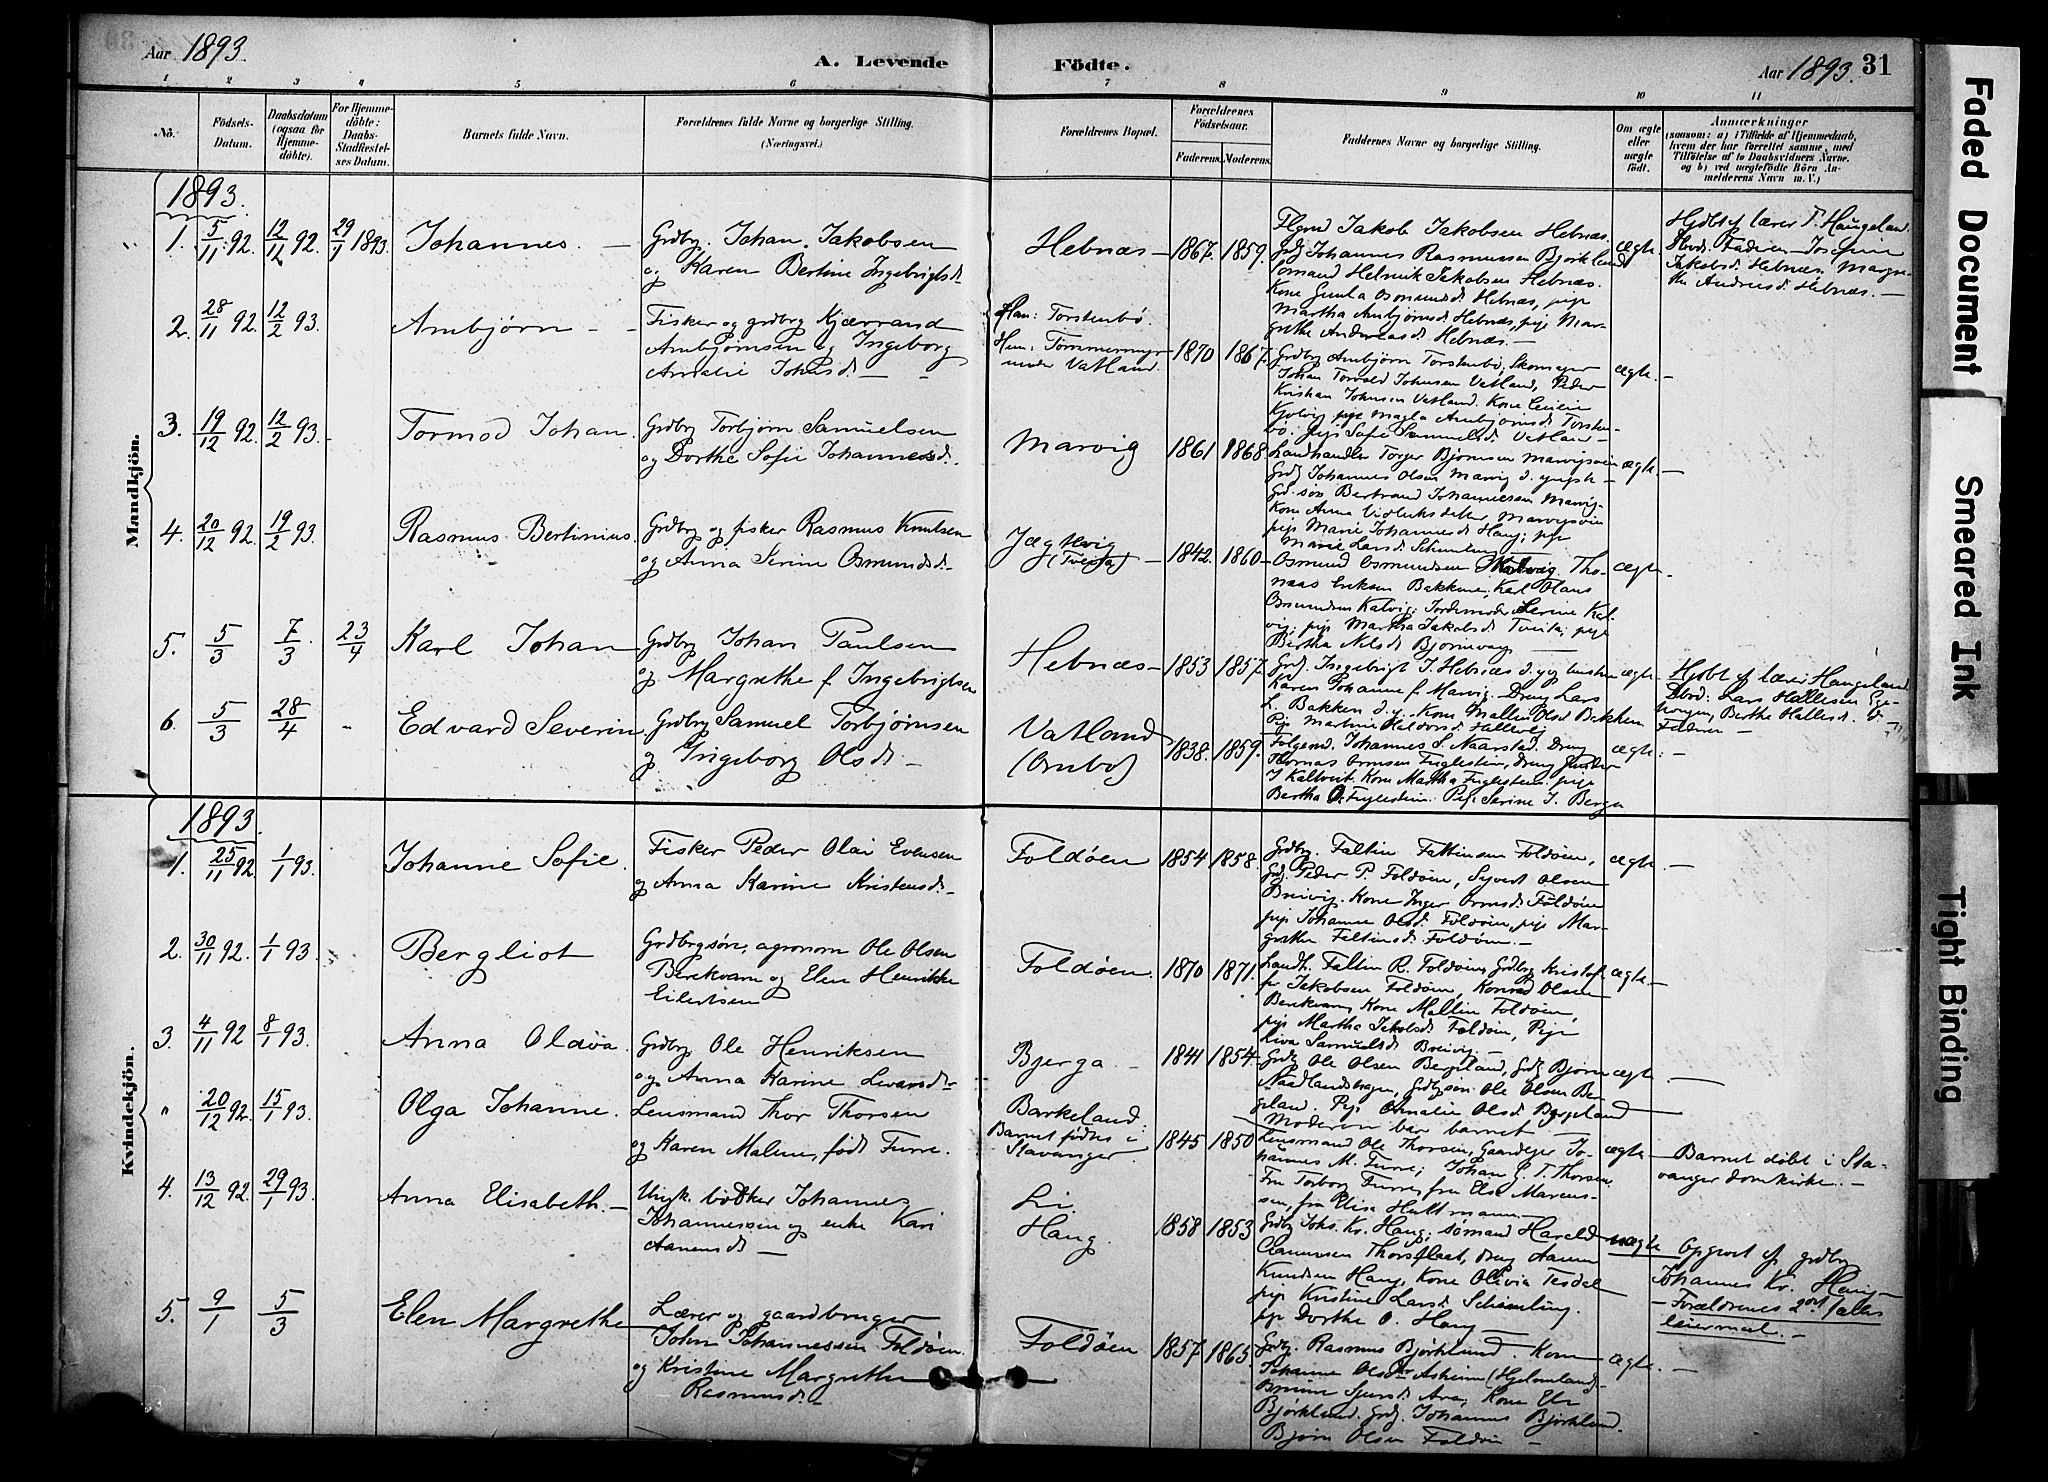 Aar 1893.
A. Levende
Födte.
Aar 1893.
31
1 2 3 4 5 6 7 8 9 10 11
No.
Födsels-
Datum.
Daabsdatum
(ogsaa for
Hjemme-
döbte).
For Hjemme-
döbte:
Daabs-
Stadfæstel-
ses Datum.
Barnets fulde Navn.
Forældrenes fulde Navne og borgerlige Stilling.
(Næringsvei.)
Forældrenes Bopæl.
Forældrenes
Födselsaar.
Faderens. Moderens.
Faddernes Navne og borgerlige Stilling.
Om ægte
eller
uægte
födt.
Anmærkninger
(saasom: a) i Tilfælde af Hjemmedaab,
hvem der har forrettet samme, med
Tilföielse af to Daabsvidners Navne.
og b) ved uægtefödte Börn An-
melderens Navn m. V.)
Mandkjön.
1893.
1. 5/11 92. 12/12 92. 29/1 1893. Johannes. —
Grdbr. Johan Jakobsen
og Karen Bertine Ingebrigtsd.
Hebnæs — 1867. 1859.
Jakob Jakobsen Hebnæs.
Johannes Rasmussen Bjørklund
Sømand Helmik Jakobsen Hebnæs.
Kone Osmundsd. Hebnæs, pige
Martha Ambjørnsd. Hebnæs, pige Mar-
grethe Andreasd. Hebnæs. —
ægte.
Hjdbt af lærer T. Haugeland.
Faderen Josefine
Jakobsd. Hebnæs, Margre-
the Andreasd. Hebnæs. —
2. 28/11 92. 12/2 93. Ambjørn — —
Fisker og grdbrg Kjærrand
Ambjørnsen og Ingeborg
Amalie Johnsd. —
Han: Torstenbø.
Hun: Tømmermyr
under Vatland.
1870 1867.
Grdbrg Ambjørn Torstenbø, Skomager
Johan Torvald Johnsen Vatland, Peder
Kristian Johnsen Vatland. Kone Cecilie
pige Magla Ambjørnsd. Torsten-
bø. pige Sofie Samuelsd. Vatland —
ægte. —
3. 19/12 92. 12/2 93. — Tormod Johan.
Grdbrg Torbjørn Samuelsen
og Dorthe Sofie Johannesd.
Marvig 1861 1868
Landhandler Torger Bjørnsen Marvigsveen
Grdbr Johannes Olsen Marvig d. yngste —
Grd.søn Bertrand Johannessen Marvig.
Kone Anna Marvigsveen
pige Marie Johannesd. Haug; pige
Marie Larsd. Schemling —
ægte. —
4. 20/12 92. 19/2 93. Rasmus Bertinius.
Grdbrg og fisker Rasmus Knutsen
og Anna Serine Osmundsd. —
Jægtevig
(Tveita) — 1842. 1860 —
Osmund Osmundsen Kalvig, Tho-
mas Eriksen Bakkene, Karl Olaus
Osmundsen Kalvig; Jordemoder Serine Kal-
vig; pige Martha Jakobsd. Tveita, pige
Bertha Nilsd Bjørnevaag —
ægte.
5. 5/3 7/3. 23/4 Karl Johan
Grdbrg Johan Paulsen
og Margrethe f. Ingebrigtsen
Hebnæs — 1853 1857.
Grdb. Ingebrigt J. Hebnæs d. y og hustru
Karen Johanne f. Marvig. Dreng Lars
L. Bakken d. y. Kone Mallin Olsd Bakken
Pige Martine Haldorsd. Hallevig
ægte —
Hjdbt af lærer Haugeland
Lars Hallesen
Berthe Hallesd. &
Faderen —
6. 5/3 28/4 - Edvard Severin
Grdbrg Samuel Torbjørnsen
og Ingeborg Olsd. —
Vatland
(Ørnbø) 1838. 1859.
Folgemd. Johannes S. Naarstad, Dreng
Thomas Ormsen Fuglestein, dreng
J Kallveit. Kone Martha Fuglestein. pige
Bertha O. Fuglestein. Pige Serine J. Berga
ægte. —
Kvindekjön.
1893.
1. 25/11 92 1/1 93. Johanne Sofie.
Fisker Peder Olai Evensen
og Anna Karine Kristensd. —
Foldøen 1854 1858.
Grdbrg. Faltin Faltinsen Foldøen,
Grdb. Peder P. Foldøen, Syvert Olsen
Breivig. Kone Inger Ormsd. Foldøen
pige Johanne Olsd. Foldøen, pige Mar-
grethe Feltinsd. Foldøen. —
ægte. —
2. 30/11 92. 1/1 93. Bergliot
Grdbrgsøn, agronom Ole Olsen
Berekvam og Elen Henrikke
Eilertsen
Foldøen. 1870 1871.
Landh. Faltin R. Foldøen, Grdbrg Kristof-
fer Jakobsen Foldøen, Konrad Olsen
Berekvam, Kone Mallin Foldøen,
pige Martha Jakobsd. Foldøen, Pige
Samuelsd Breivig —
ægte. —
3. 4/11 92 8/1 93. Anna Oldøa.
Grdbrg Ole Henriksen
og Anna Karine
Bjerga — 1841 1854.
Grdb Ole Olsen Bergeland, Grdb Bjørn
Naadlandshagen, Grdbgsøn Ole Olsen Ber-
geland. Pige Amalie Olsd. Bergeland
Moderen bar barnet —
ægte. —
" 20/12 92. 15/1 93. Olga Johanne.
Lensmand Thor Thorsen
og Karen Malene, født Furre.
Barkeland:
Barnet fødtes i
Stavanger 1845 1850
Lensmand Ole Thorsen, Gaardejer Jo-
hannes M. Furre; Johan T. Thorsen
Fru Torborg Furre, fru Else Marcus-
sen, fru Elise Hultmann —
ægte —
Barnet døbt i Sta-
vanger domkirke. —
4. 13/12 92. 29/1 93. Anna Elisabeth. —
Ungk. bødker Johannes
Johannessen og enke Kari
Aanensd. —
Li.
Haug. 1858 1853
Grdbrg Johs. Kr. Haug; sømand Harald
Aamunsen Thorsflaat, dreng Aanen
Knudsen Haug, Kone Olivia Tesdal
pige Kristine Larsd. Schemling.
pige Dorthe O. Haug —
uægte
Opgivet af grdbrg
Johannes Kr. Haug —
— Forældrenes 2det falds
leiermaal. —
5. 9/1 5/3 Elen Margrethe
Lærer og gaardbruger
John Johannessen Foldøen.
og Kristine Margrethe
Rasmusd. —
Foldøen 1857. 1865.
Grdbg. Rasmus Bjørklund. Kone
Johanne Olsdr Asheim (Hjelmeland)
Sjursd. Ara, Kone Else
Bjørklund. Grdg. Johannes Bjørklund.
Bjørn Olsen Foldøen —
ægte. —
Faded Document
Smeared Ink
Tight Binding